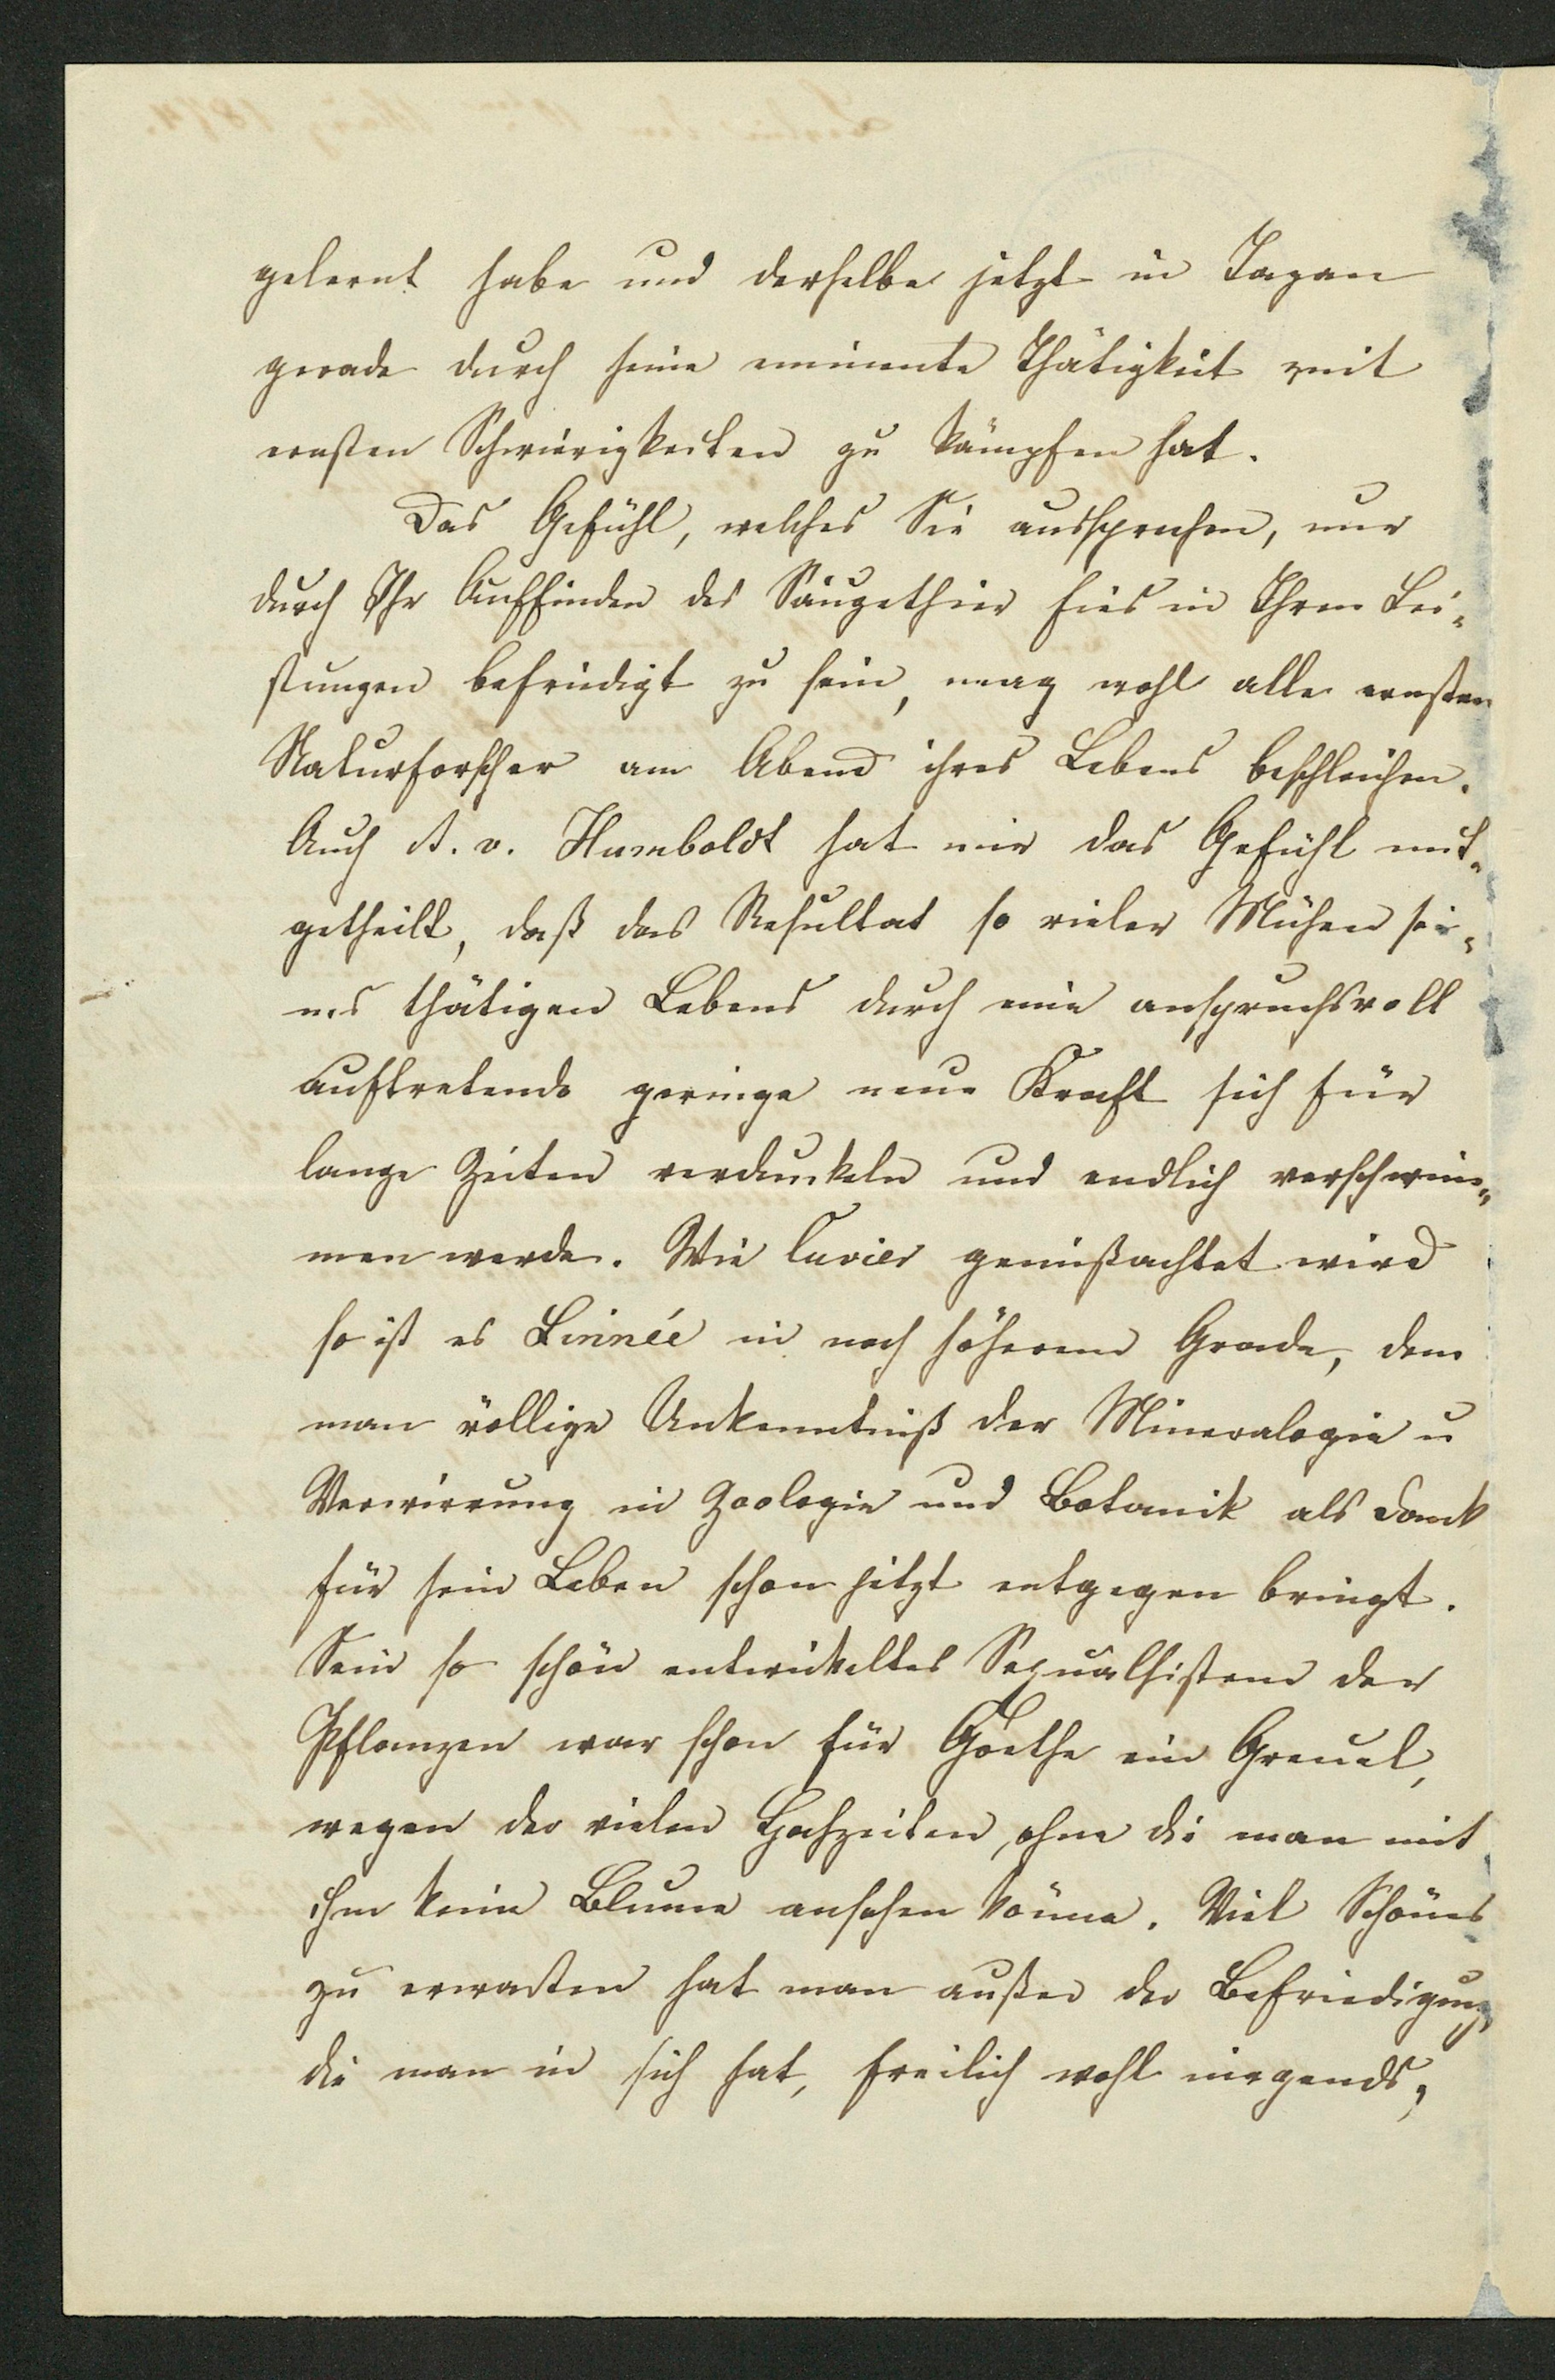 gelernt habe und derselbe jetzt in Japan
gerade durch seine eminente Thätigkeit mit
ernsten Schwierigkeiten zu kämpfen hat.
Das Gefühl, welches Sie aussprechen, nur
durch Ihr Auffinden des Säugethier Eies in Ihren Lei-
stungen befriedigt zu sein, mag wohl alle ernsten
Naturforscher am Abend ihres Lebens beschleichen.
Auch A. v. Humboldt hat mir das Gefühl mit-
getheilt, daß das Resultat so vieler Mühen sei-
nes thätigen Lebens durch eine anspruchsvoll
auftretende geringe neue Kraft sich für
lange Zeiten verdunkeln und endlich verschwim-
men werde. Wie Cuvier gemißachtet wird
so ist es Linnée in noch höherem Grade, dem
man völlige Unkenntniß der Mineralogie u
Verwirrung in Zoologie und Botanik als Dank
für sein Leben schon jetzt entgegen bringt.
Sein so schön entwickeltes Sexualsistem der
Pflanzen war schon für Göethe ein Greuel,
wegen der vielen Hochzeiten, ohne die man mit
ihm keine Blume ansehen könne. Viel Schönes
zu erwarten hat man außer der Befriedigung,
die man in sich hat, freilich wohl nirgends;